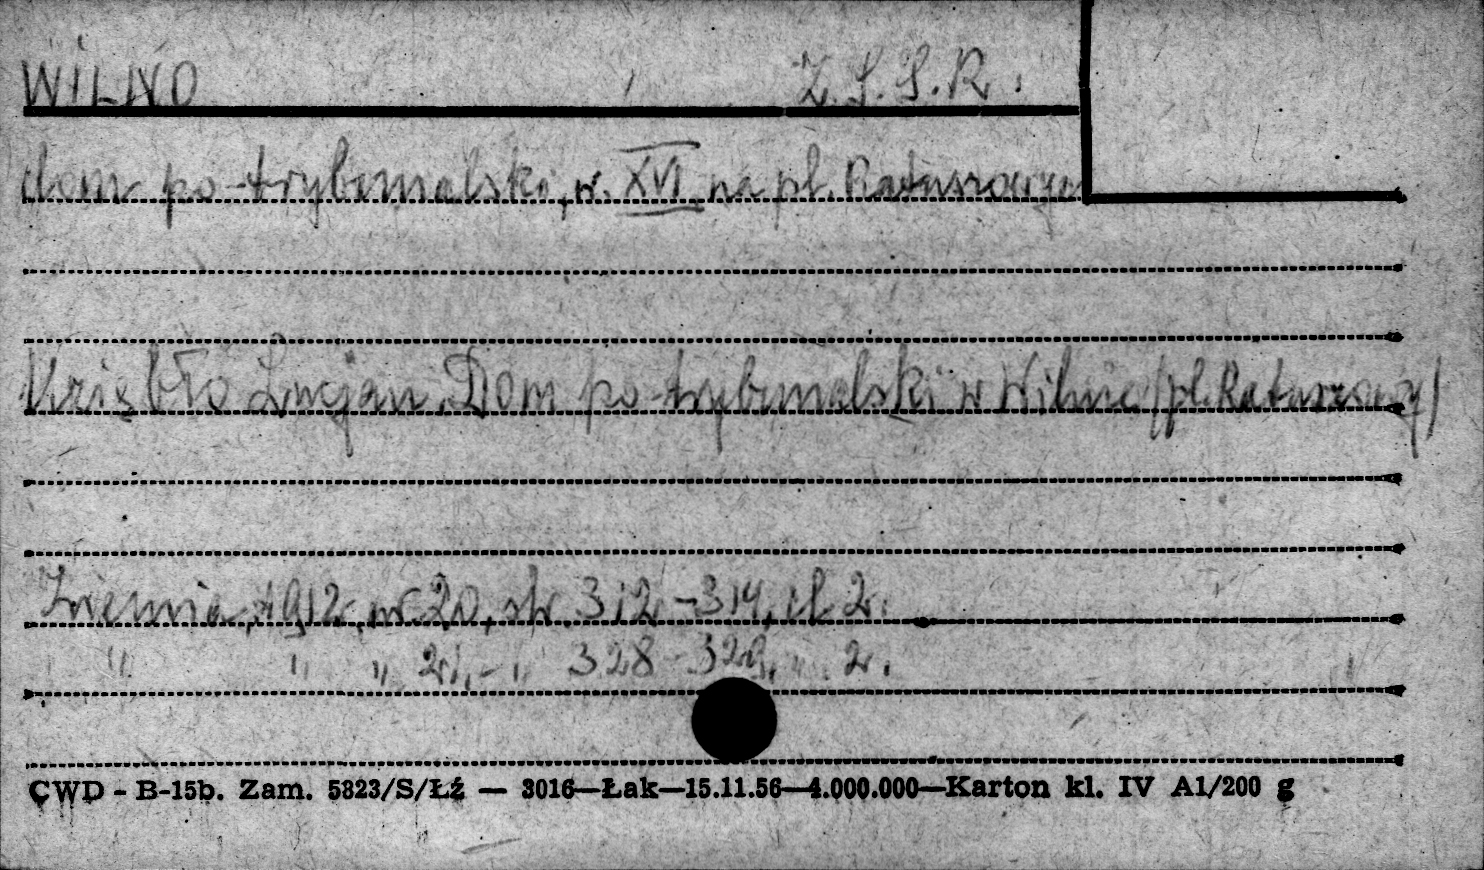 WILNO Z.S.S.R.
dom po-trybunalski, w. XVI, na pl. Ratuszowym
Uziębło Lucjan. Dom po-trybunalski w Wilnie /pl. Ratuszowy/
Ziemia, 1912, nr. 20, str. 312-314, il. 2.
" " " 21, - " 328-329, " 2.
CWD - B-15b. Zam. 5823/S/Łź — 3016—Łak—15.11.56—4.000.000—Karton kl. IV A1/200 g